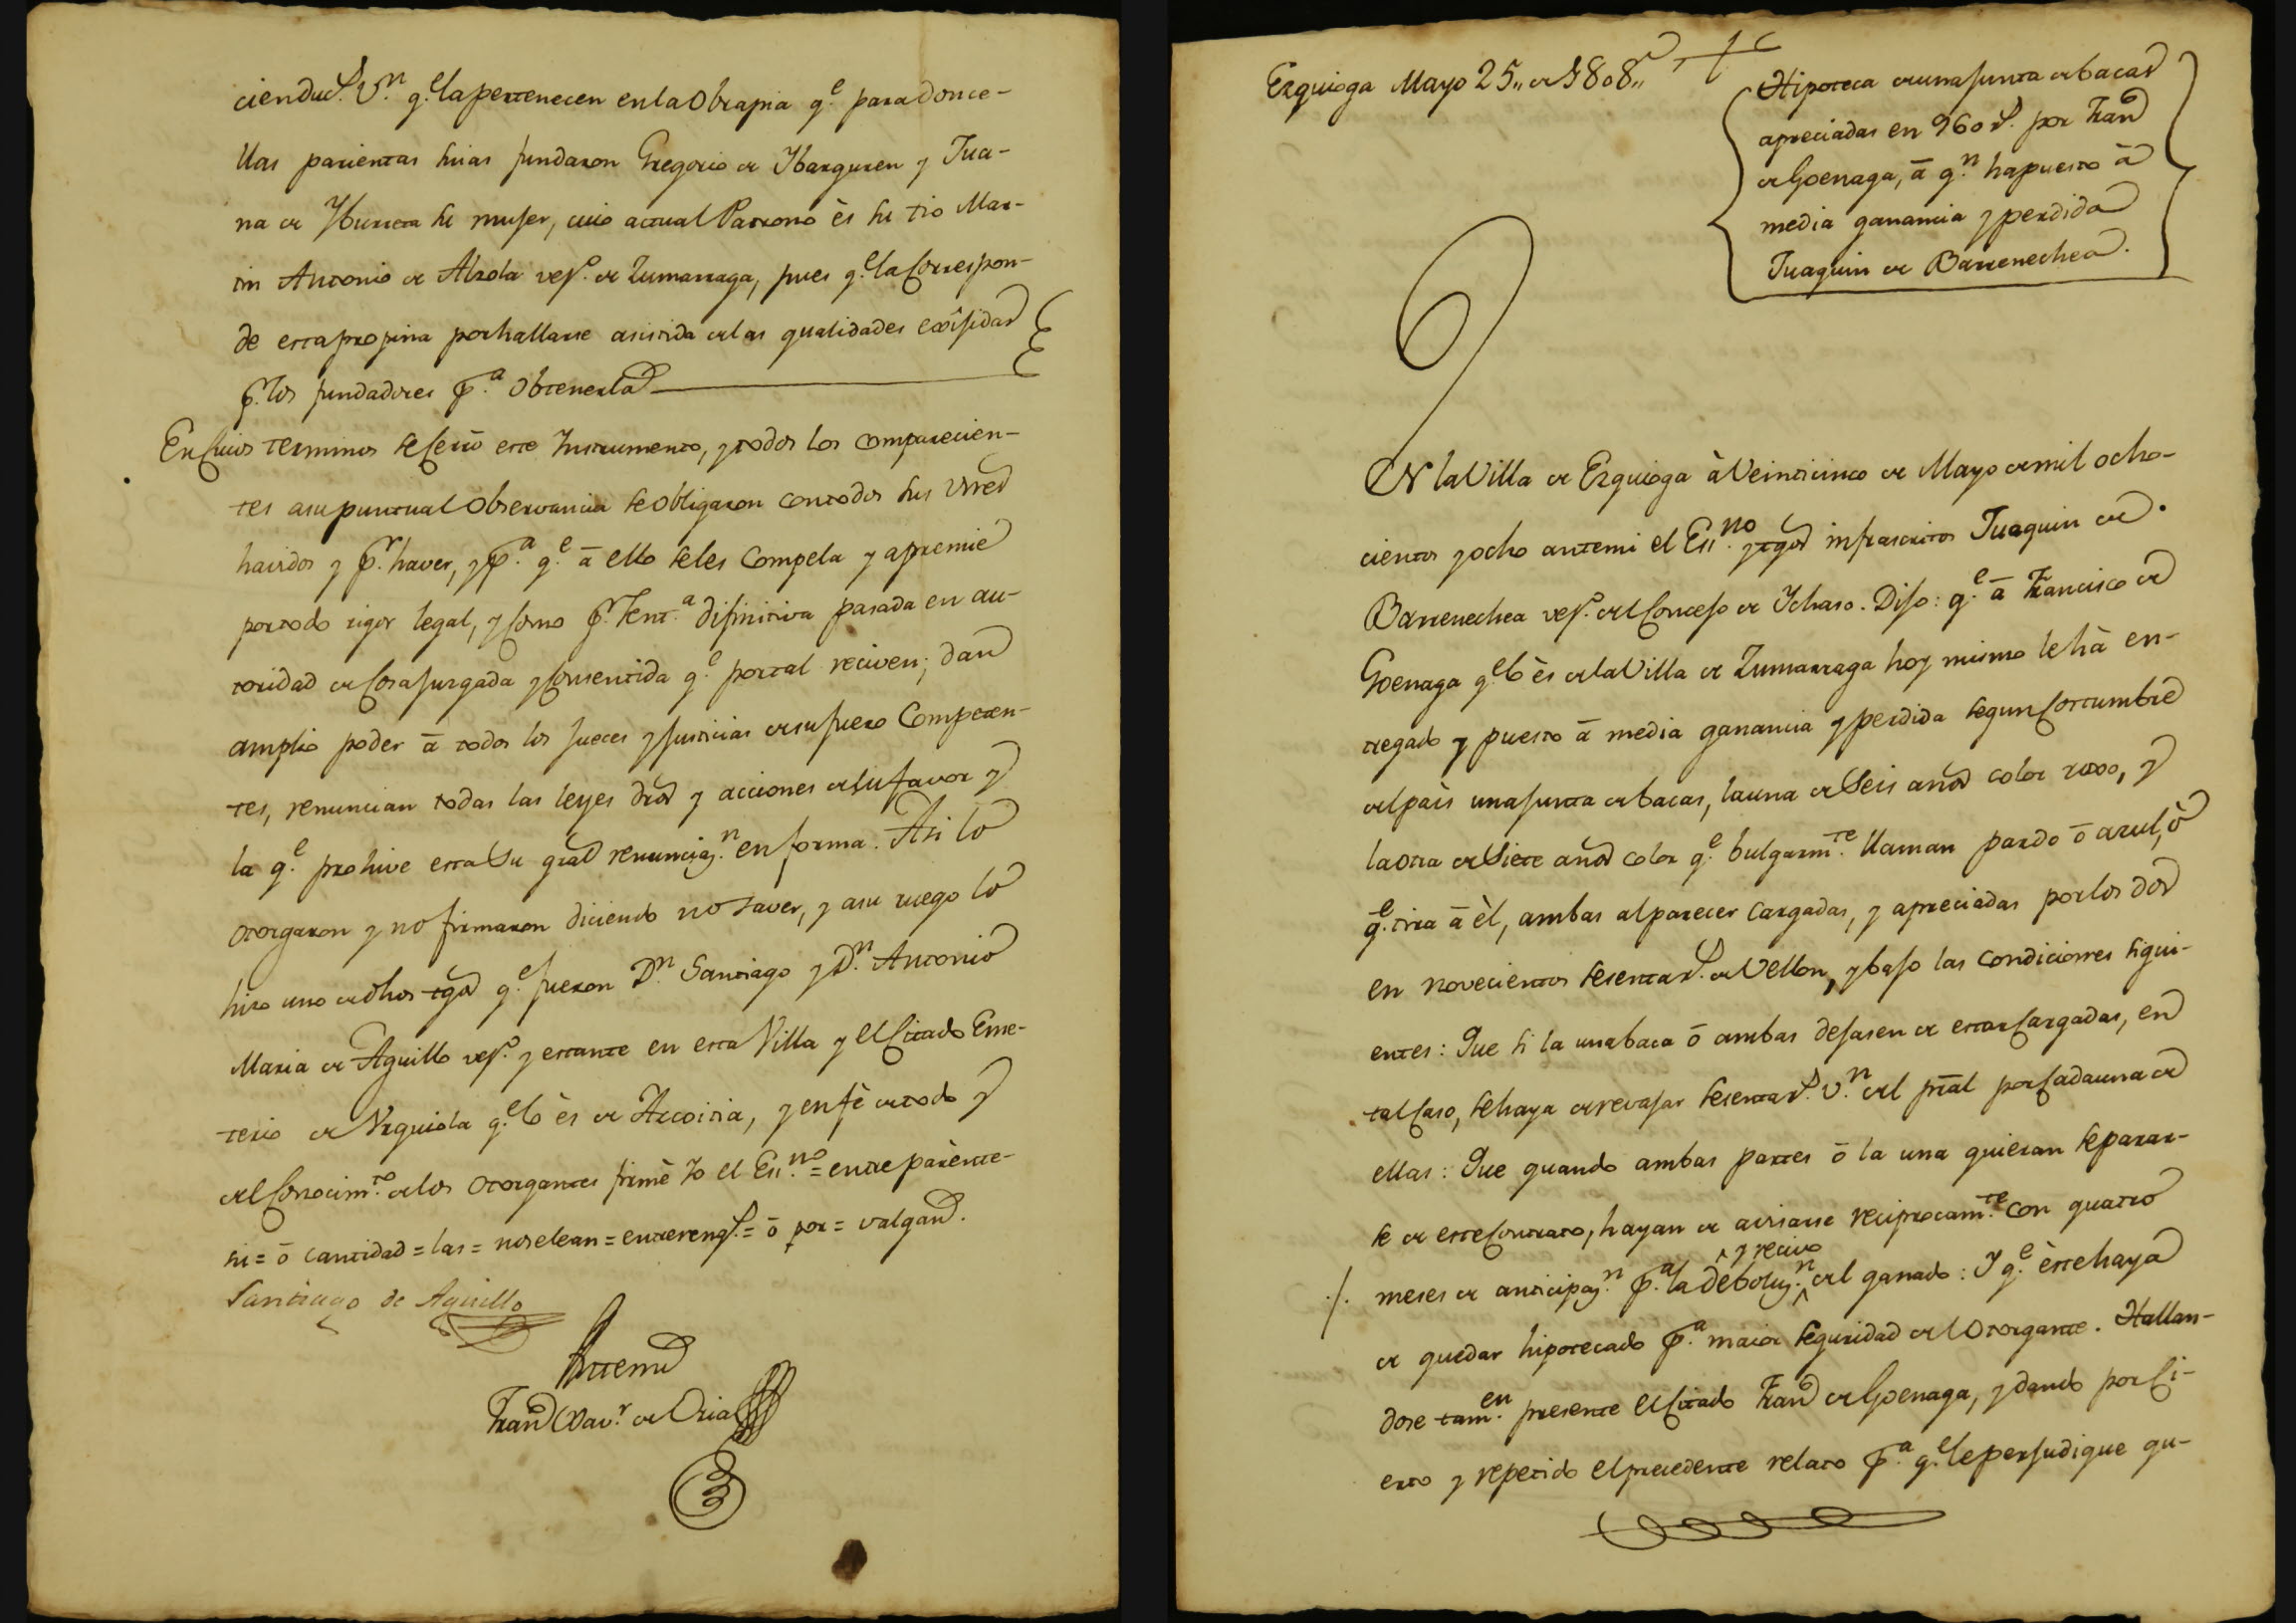 ciend.s v.n q.e la pertenecen en la Obra pia q.e para donce-
llas parientas suias fundaron Gregorio de Ybarguren y Jua-
na de Yburreta su muger, cuio actual Patrono ès su tio Mar-
tin Antonio de Alzola vez.o de Zumarraga, pues q.e la correspon-
de esta propina por hallarse asistida de las qualidades exijidas
p.r los fundadores p.a obtenerla
En cuios terminos se cerró este Instrumento, y todos los comparecien-
tes a su puntual observancia se obligaron con todos sus vnes
havidos y p.r haver, y p.a q.e à ello se les compela y apremie
por todo rigor legal, y como p.r sent.a difinitiva pasada en au-
toridad de cosa juzgada y consentida q.e por tal reciven; dan
amplio poder à todos los jueces y justicias de su fuero competen-
tes, renuncian todas las leyes dros y acciones de su favor y
la q.e prohive esta su gral renunciaz.n en forma. Asi lo
otorgaron y no firmaron diciendo no saver, y a su ruego lo
hizo uno de dhos tgos q.e fueron D.n Santiago y D.n Antonio
Maria de Aguillo vez.o y estante en esta Villa y el citado Eme-
terio de Urquiola q.e lo ès de Azcoitia, y en fè de todo y
del conocim.to de los otorgantes firmè Yo el Ess.no = entre parènte-
sis = ò cantidad = las = no se lean = entrereng.s = ò por = valgan.
Santiago de Aguillo
Antemi
Fran.co Xav.r de Oria
Ezquioga Mayo 25,, de 1808,,
Hipoteca de una junta de bacas
apreciadas en 960 r.s por Fran.co
de Goenaga, à q.n ha puesto à
media ganancia y perdida
Juaquin de Barrenechea.
EN la Villa de Ezquioga à Veinticinco de Mayo de mil ocho-
cientos y ocho antemi el Ess.no y tgos infrascritos Juaquin de
Barrenechea vez.o del Concejo de Ichaso. Dijo: q.e à Francisco de
Goenaga q.e lo ès de la Villa de Zumarraga hoy mismo le hà en-
tregado y puesto à media ganancia y perdida segun costumbre
del paìs una junta de bacas, la una de Seis años color roxo, y
la otra de Siete años color q.e bulgarm.te llaman pardo ò azul, ò
q.e tira à èl, ambas al parecer cargadas, y apreciadas por los dos
en novecientos sesenta r.s de Vellon, y bajo las condiciones sigui-
entes: Que si la una baca ò ambas dejasen de estar cargadas, en
tal caso, se haya de revajar sesenta r.s v.n del pral por cada una de
ellas: Que quando ambas partes ò la una quieran separar-
se de este contrato, hayan de avisarse reciprocam.te con quatro
y recivo
meses de anticipaz.n p.a la deboluz.n del ganado: Y q.e èste haya
de quedar hipotecado p.a maior seguridad del Otorgante. Hallan-
dose tam.en presente el citado Fran.co de Goenaga, y dando por ci-
erto y repetido el precedente relato p.a q.e le perjudique qu-